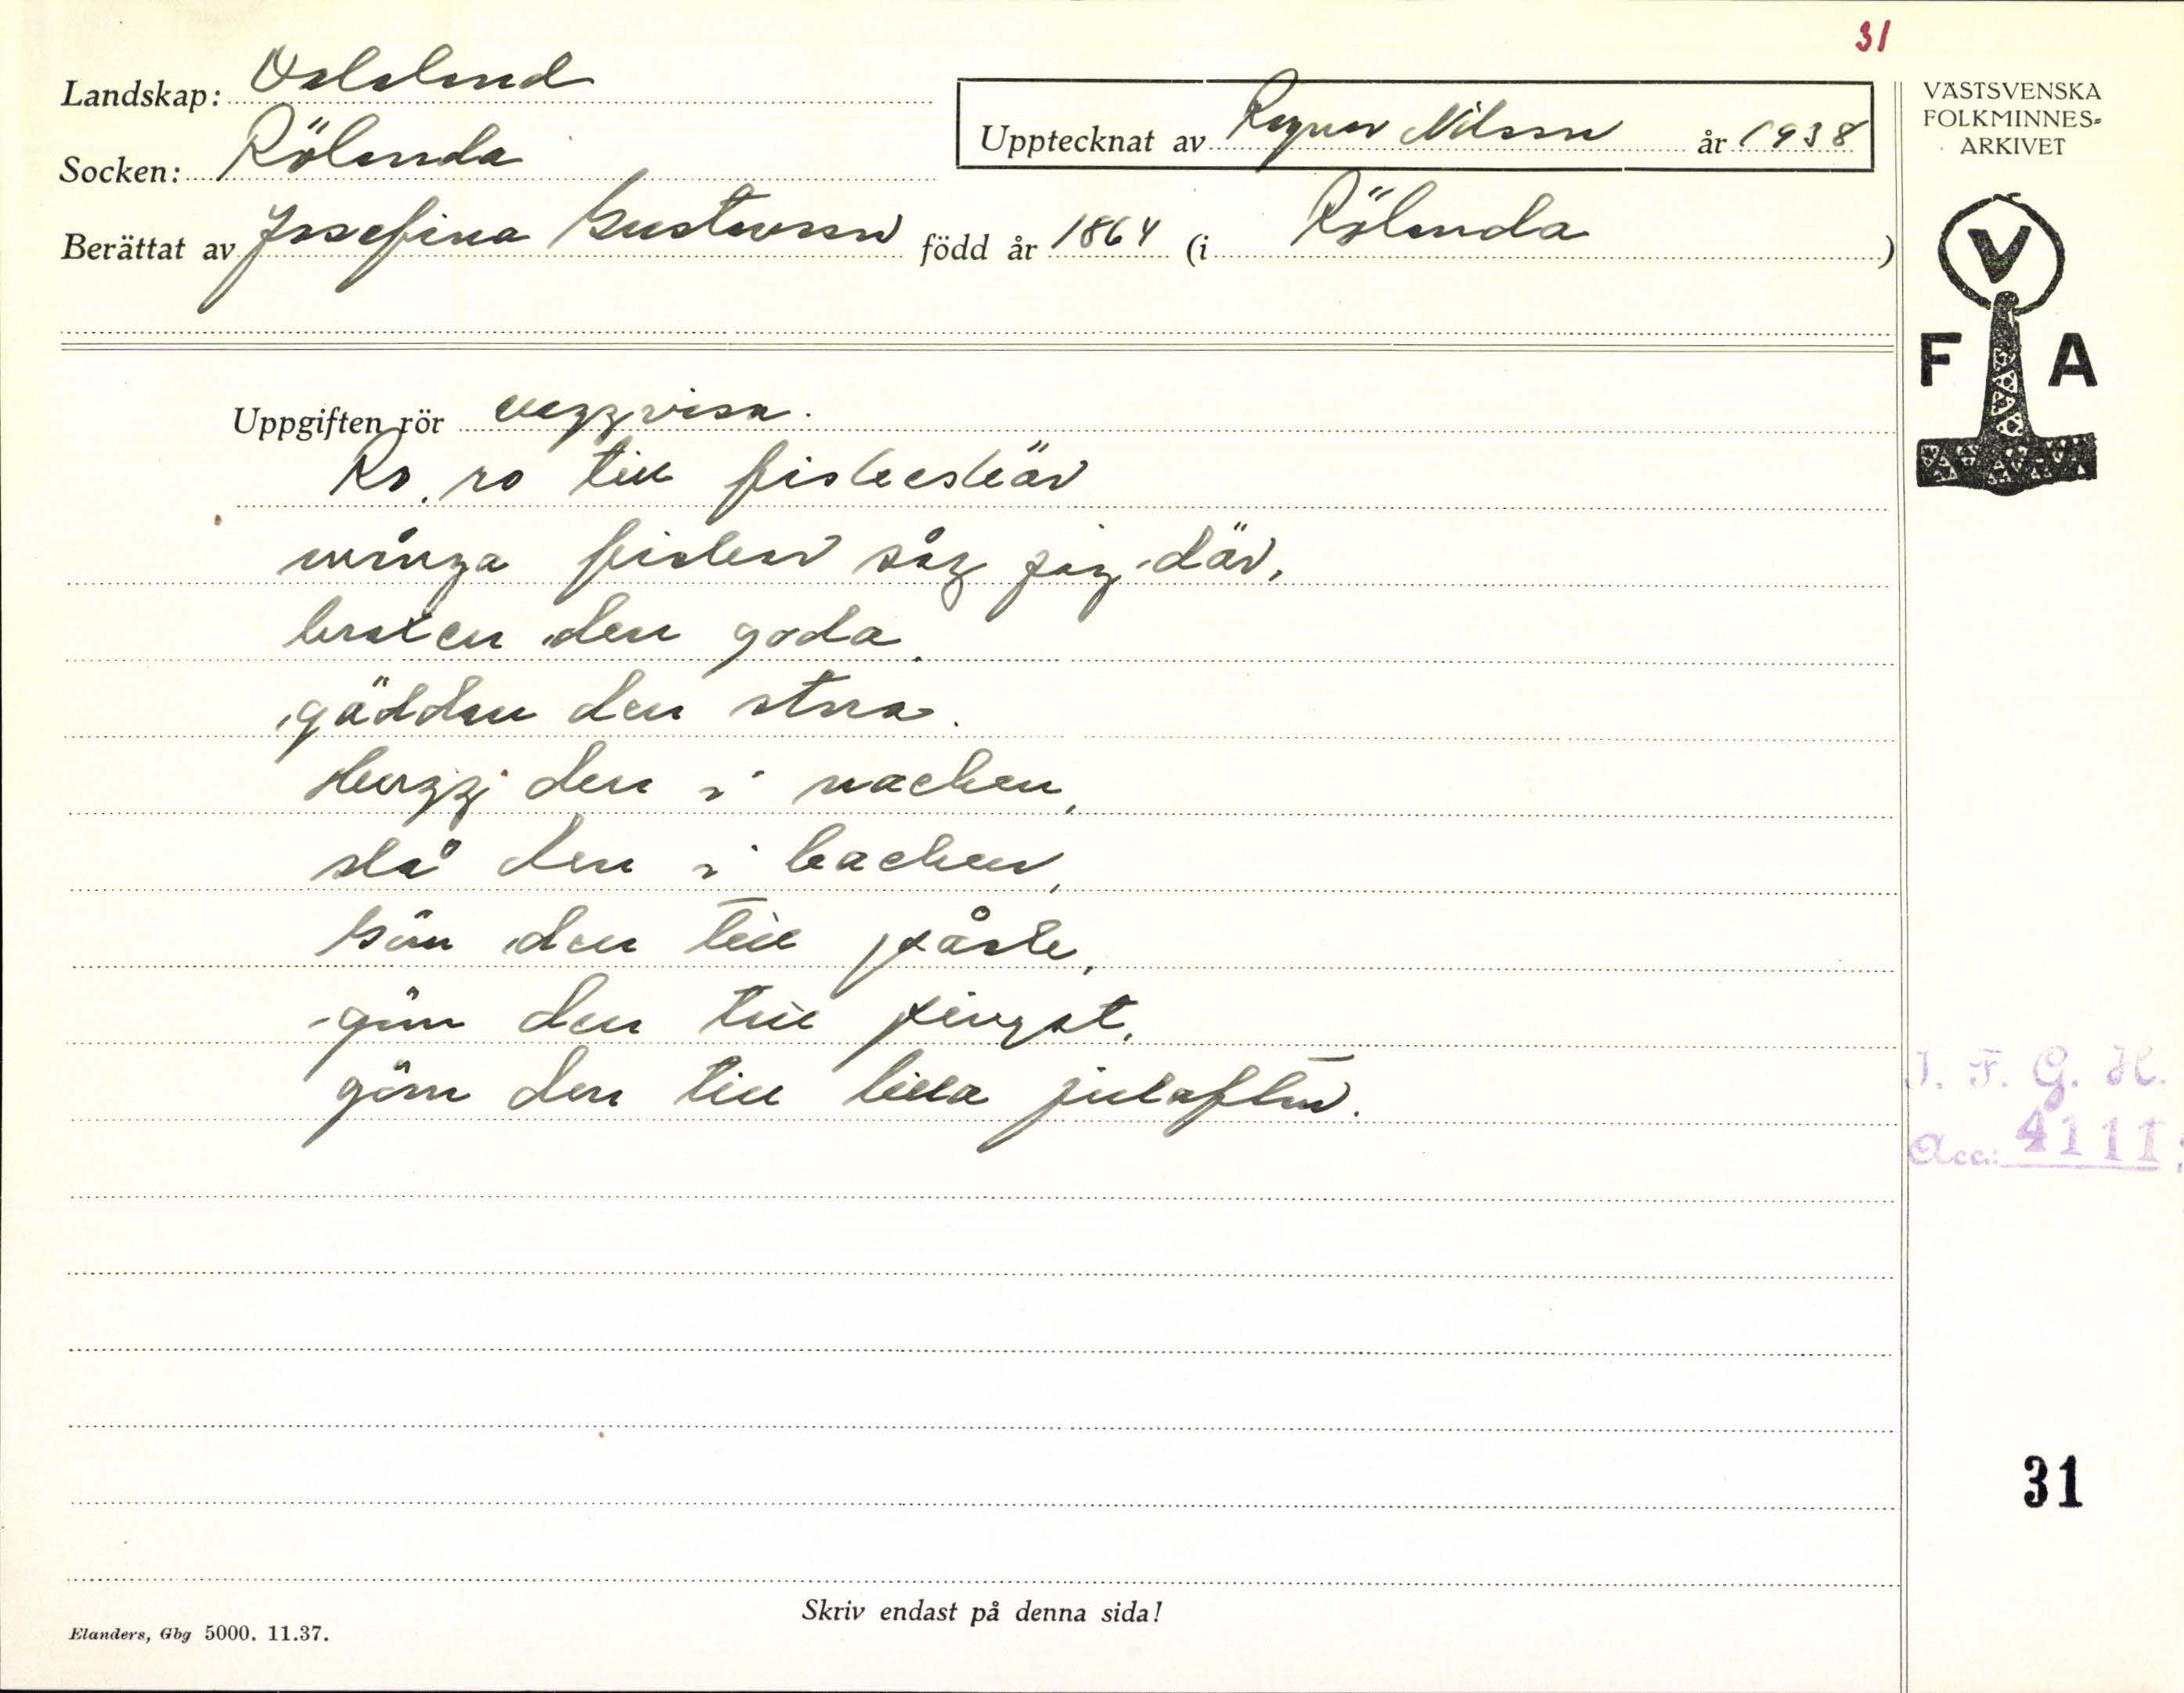 31
Landskap: Dalsland
Socken: Rölanda
Upptecknat av Ragnar Nilsson år 1938
Berättat av Josefina Gustavsson född år 1864 (i Rölanda)
VÄSTSVENSKA
FOLKMINNES-
ARKIVET
V
F A
Uppgiften rör vaggvisa.
Ro, ro till fiskeskär
många fiskar såg jag där,
braxen den goda,
gäddan den stora.
Hugg den i nacken,
slå den i backen,
göm den till påsk,
göm den till pingst,
göm den till lilla julafton.
I. F. G. H.
Acc: 4111:
31
Skriv endast på denna sida!
Elanders, Gbg 5000. 11.37.